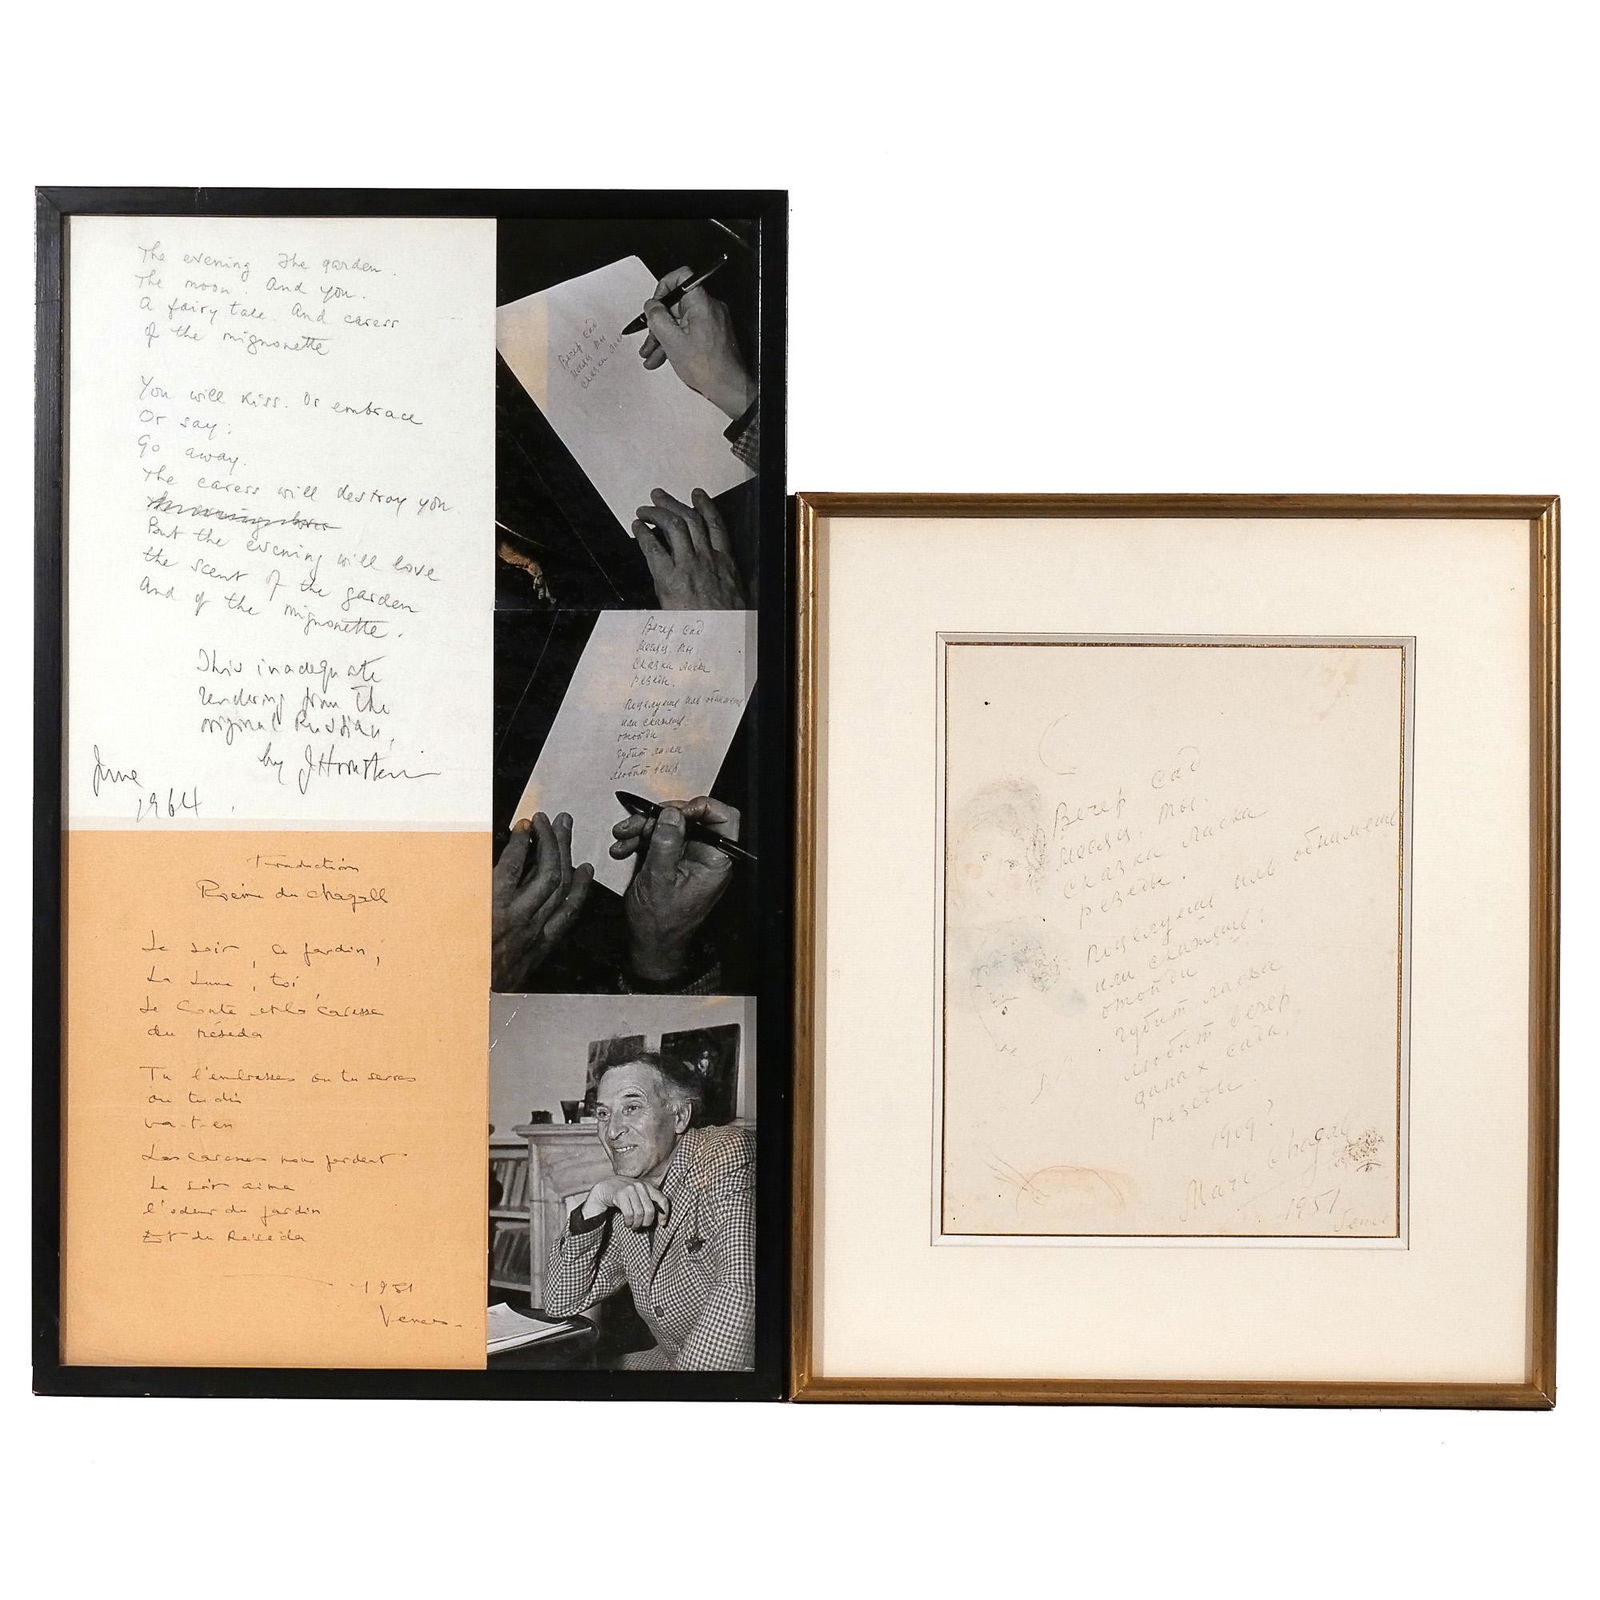 The evening The garden.
The moon. And you.
A fairy tale. And caress
of the mignonette
You will kiss. Or embrace
Or say:
Go away.
The caress will destroy you
But the evening will love
the scent of the garden
And of the mignonette.
This inadequate
rendering from the
original Russian,
by J Hornstein
June
1964.
Traduction
Poème de Chagall
Le soir, Le jardin,
La Lune, toi
Le Conte et la caresse
du réséda
Tu l'embrasses ou tu serres
ou tu dis
va-t-en
Les caresses nous perdent
Le soir aime
l'odeur du jardin
Et du Réséda
1951
Вечер сад
месяц ты
сказки
Вечер сад
месяц. ты
сказка ласка
резеды.
поцелуешь иль обнимешь
или скажешь:
отойди
губит ласка
любит вечер
Вечер сад
месяц. ты.
сказка ласка
резеды.
поцелуешь иль обнимешь
или скажешь:
отойди
губит ласка
любит вечер
запах сада.
резеды.
1909?
Marc Chagall
1951
Vence